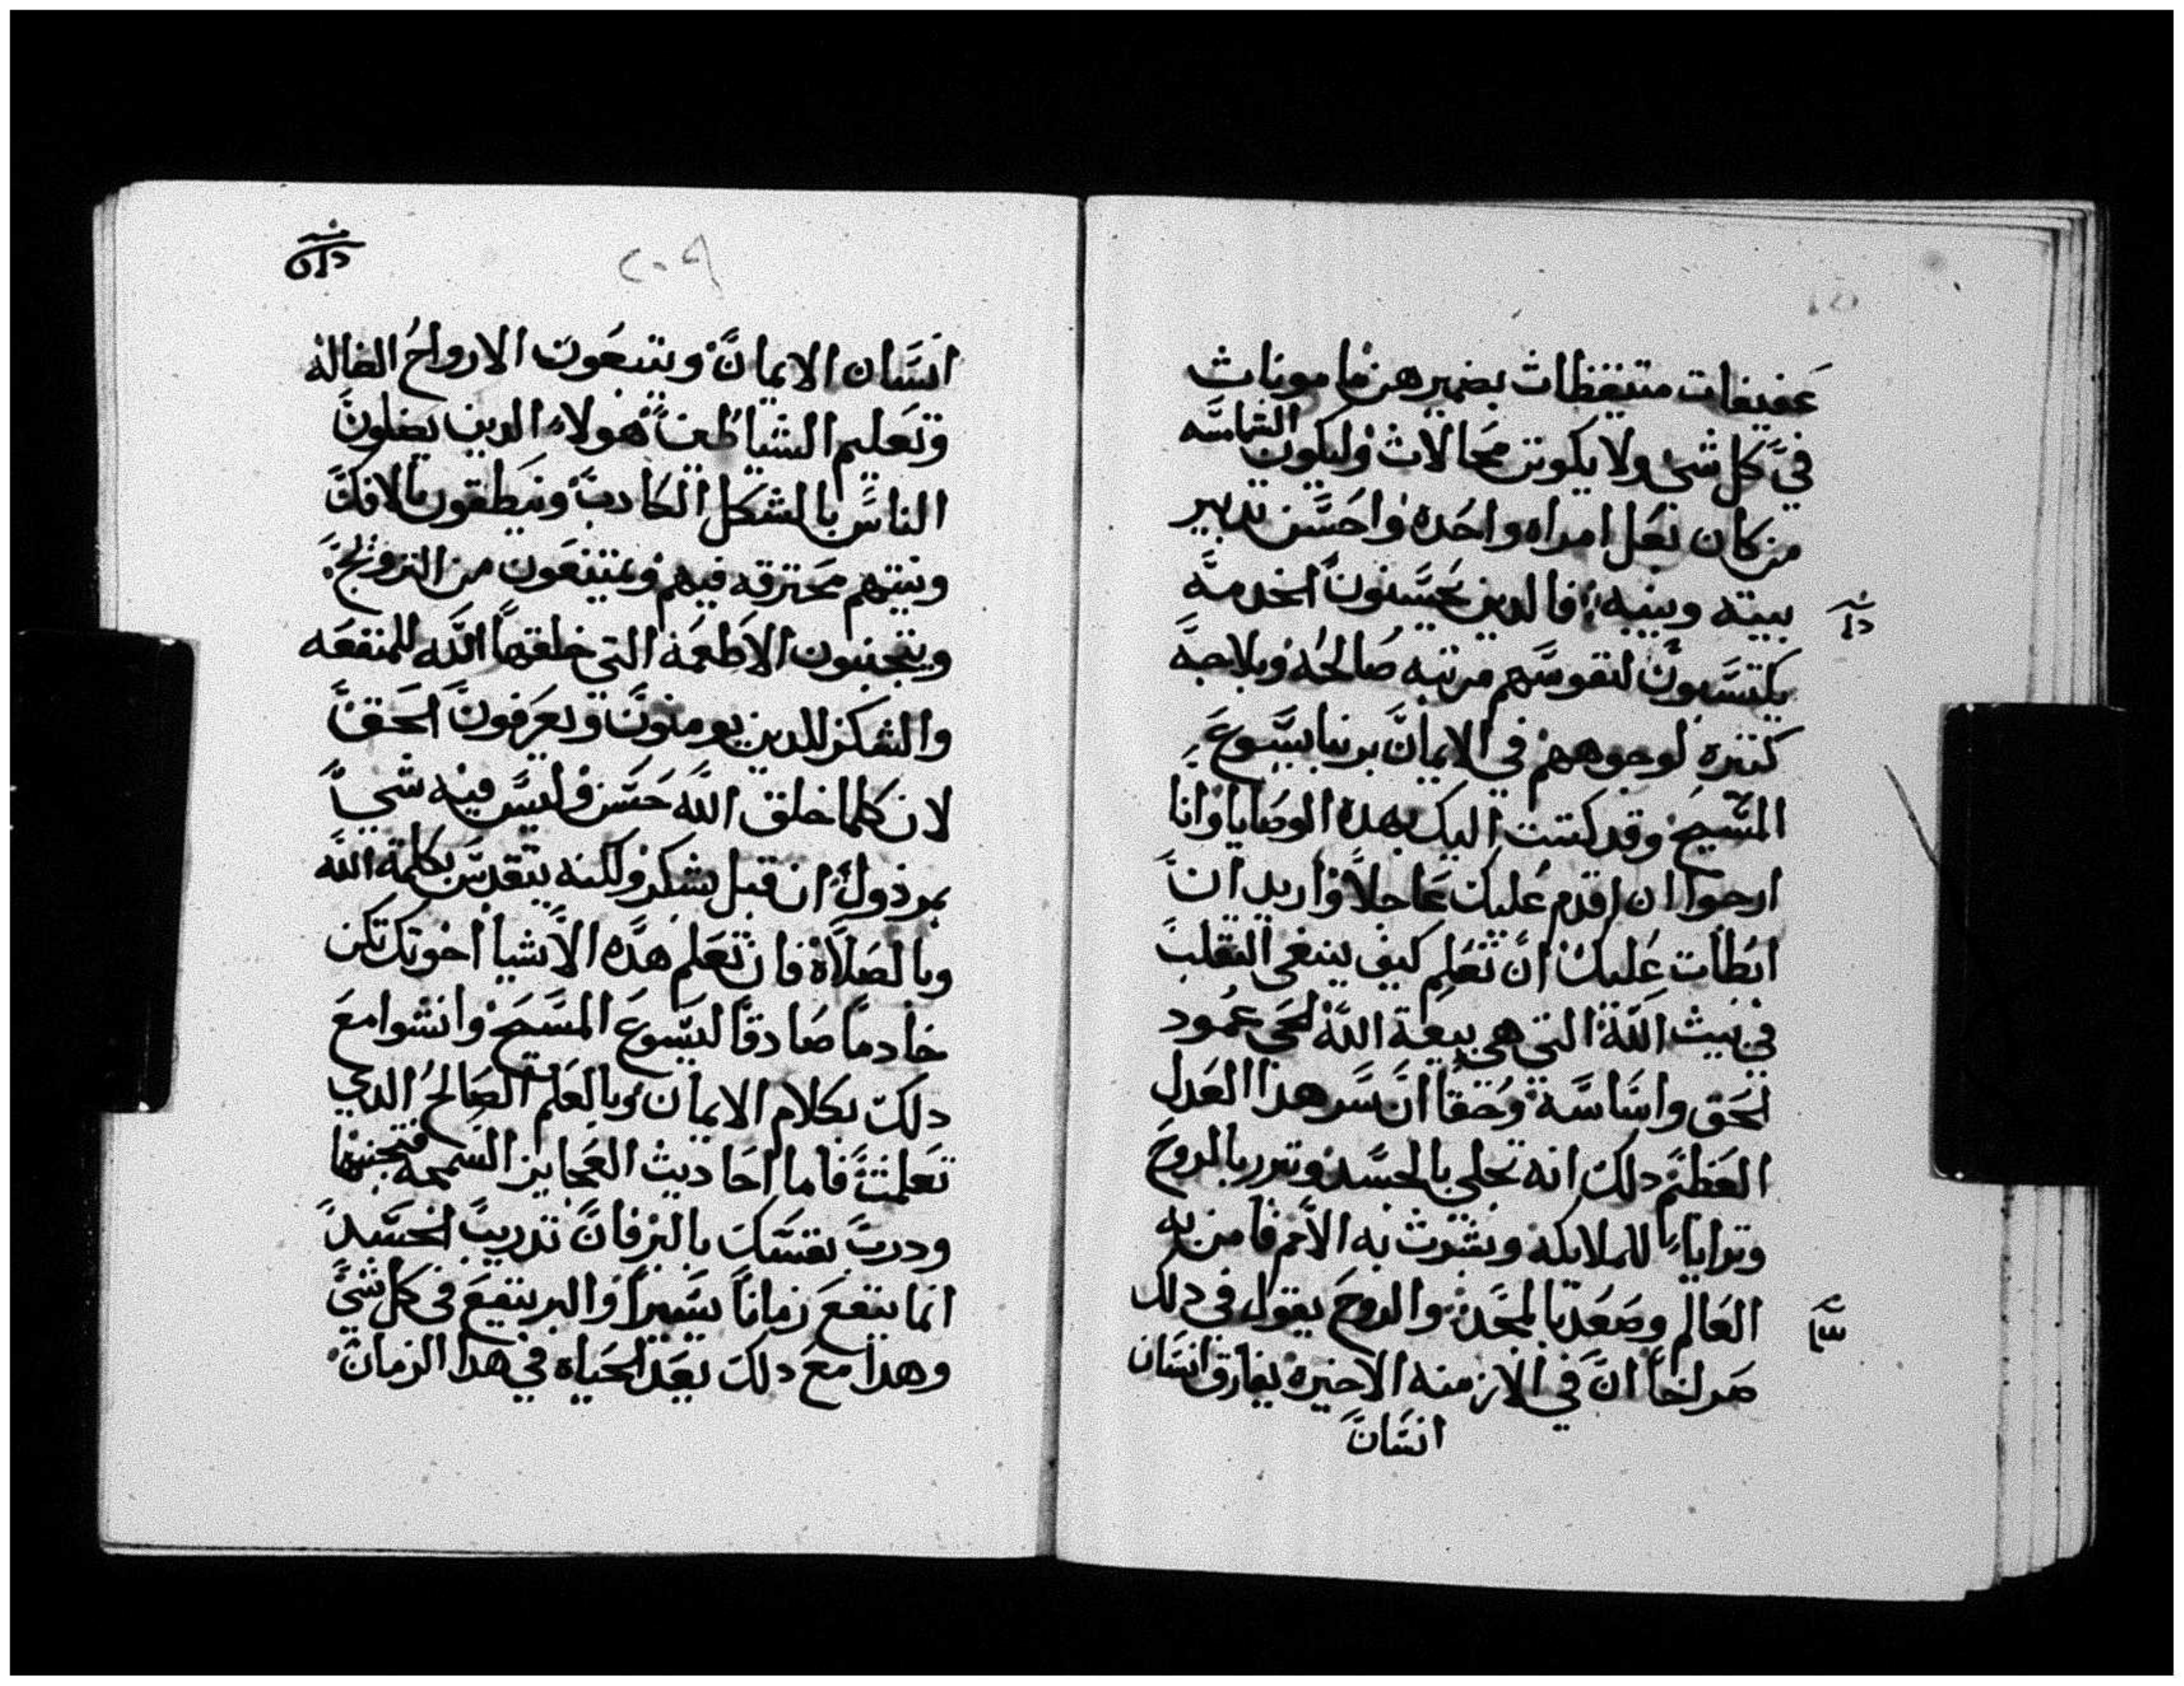 عفيفات متيقظات بضميرهن مامونات
في كل شي ولا يكونن محالات وليكون الشمامسه
من كان بعل امراه واحده واحسن تدبير
بيته وبنيه فالدين يحسنون الخدمه
يكتسبون لنفوسهم مرتبه صالحه وبلاجه
كتيره لوجوههم في الايمان بربنا يسوع
المسيح وقد كتبت اليك بهده الوصايا وانا
ارجوا ان اقدم عليك عاجلاً واريد ان
ابطات عليك ان تعلم كيف ينبغي التقلب
في بيت الله التي هي بيعة الله الحي عمود
الحق واساسه وحقاً ان سر هدا العدل
العظيم دلك انه تجلي بالجسد وتبرر بالروح
وترايا للملايكه وبشرت به الامم فامن به
العالم وصعد بالمجد والروح يقول في دلك
صراخاً ان في الازمنه الاخيره يفارق انسان
انسان
٢٠٩
انسان الايمان ويتبعون الارواح الضاله
وتعليم الشياطين هولاء الدين يضلون
الناس بالشكل الكادب وينطقون بالافك
ونيتهم محترقه فيهم ويمتنعون من التزويج
ويتجنبون الاطعمه التي خلقها الله للمنفعه
والشكر للدين يومنون ويعرفون الحق
لان كلما خلق الله حسن وليس فيه شي
مرذول ان قبل بشكر ولكنه يتقدس بكلمة الله
وبالصلاة فان تعلم هده الاشيا اخوتك تكن
خادماً صادقاً ليسوع المسيح وانشوا مع
دلك بكلام الايمان وبالعلم الصالح الدي
تعلمت فاما احاديث العجايز السمجه فتجنبها
ودرب نفسك بالبر فان تدريب الجسد
انما ينفع زماناً يسيراً والبر ينفع في كل شي
وهدا مع دلك بعد الحياه في هدا الزمان